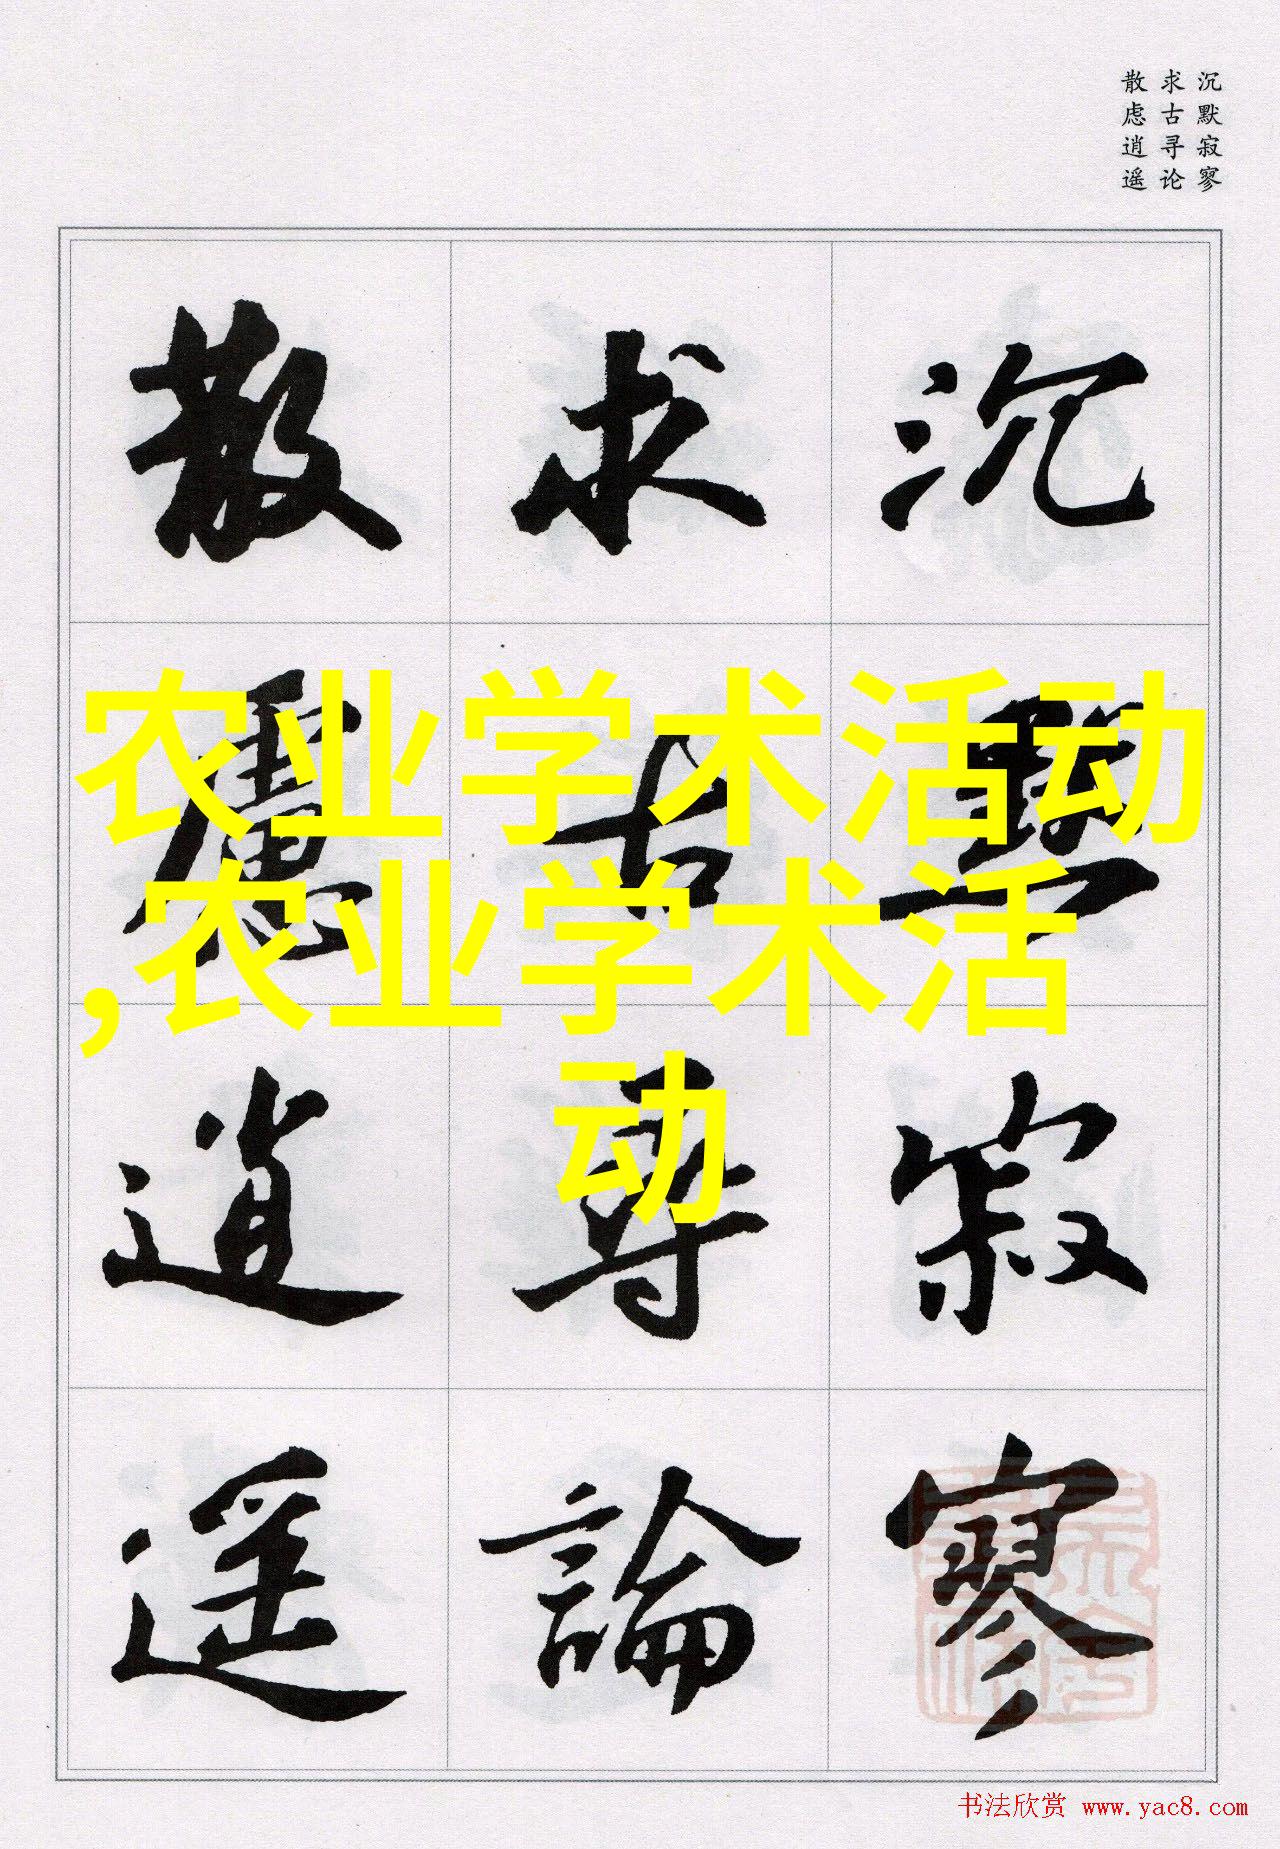 沉默寂寥
求古寻论
散虑逍遥
沉默寂寥
求古尋論
散慮逍遥
农业学术活动
,农业学术活
动
书法欣赏 www.yac8.com